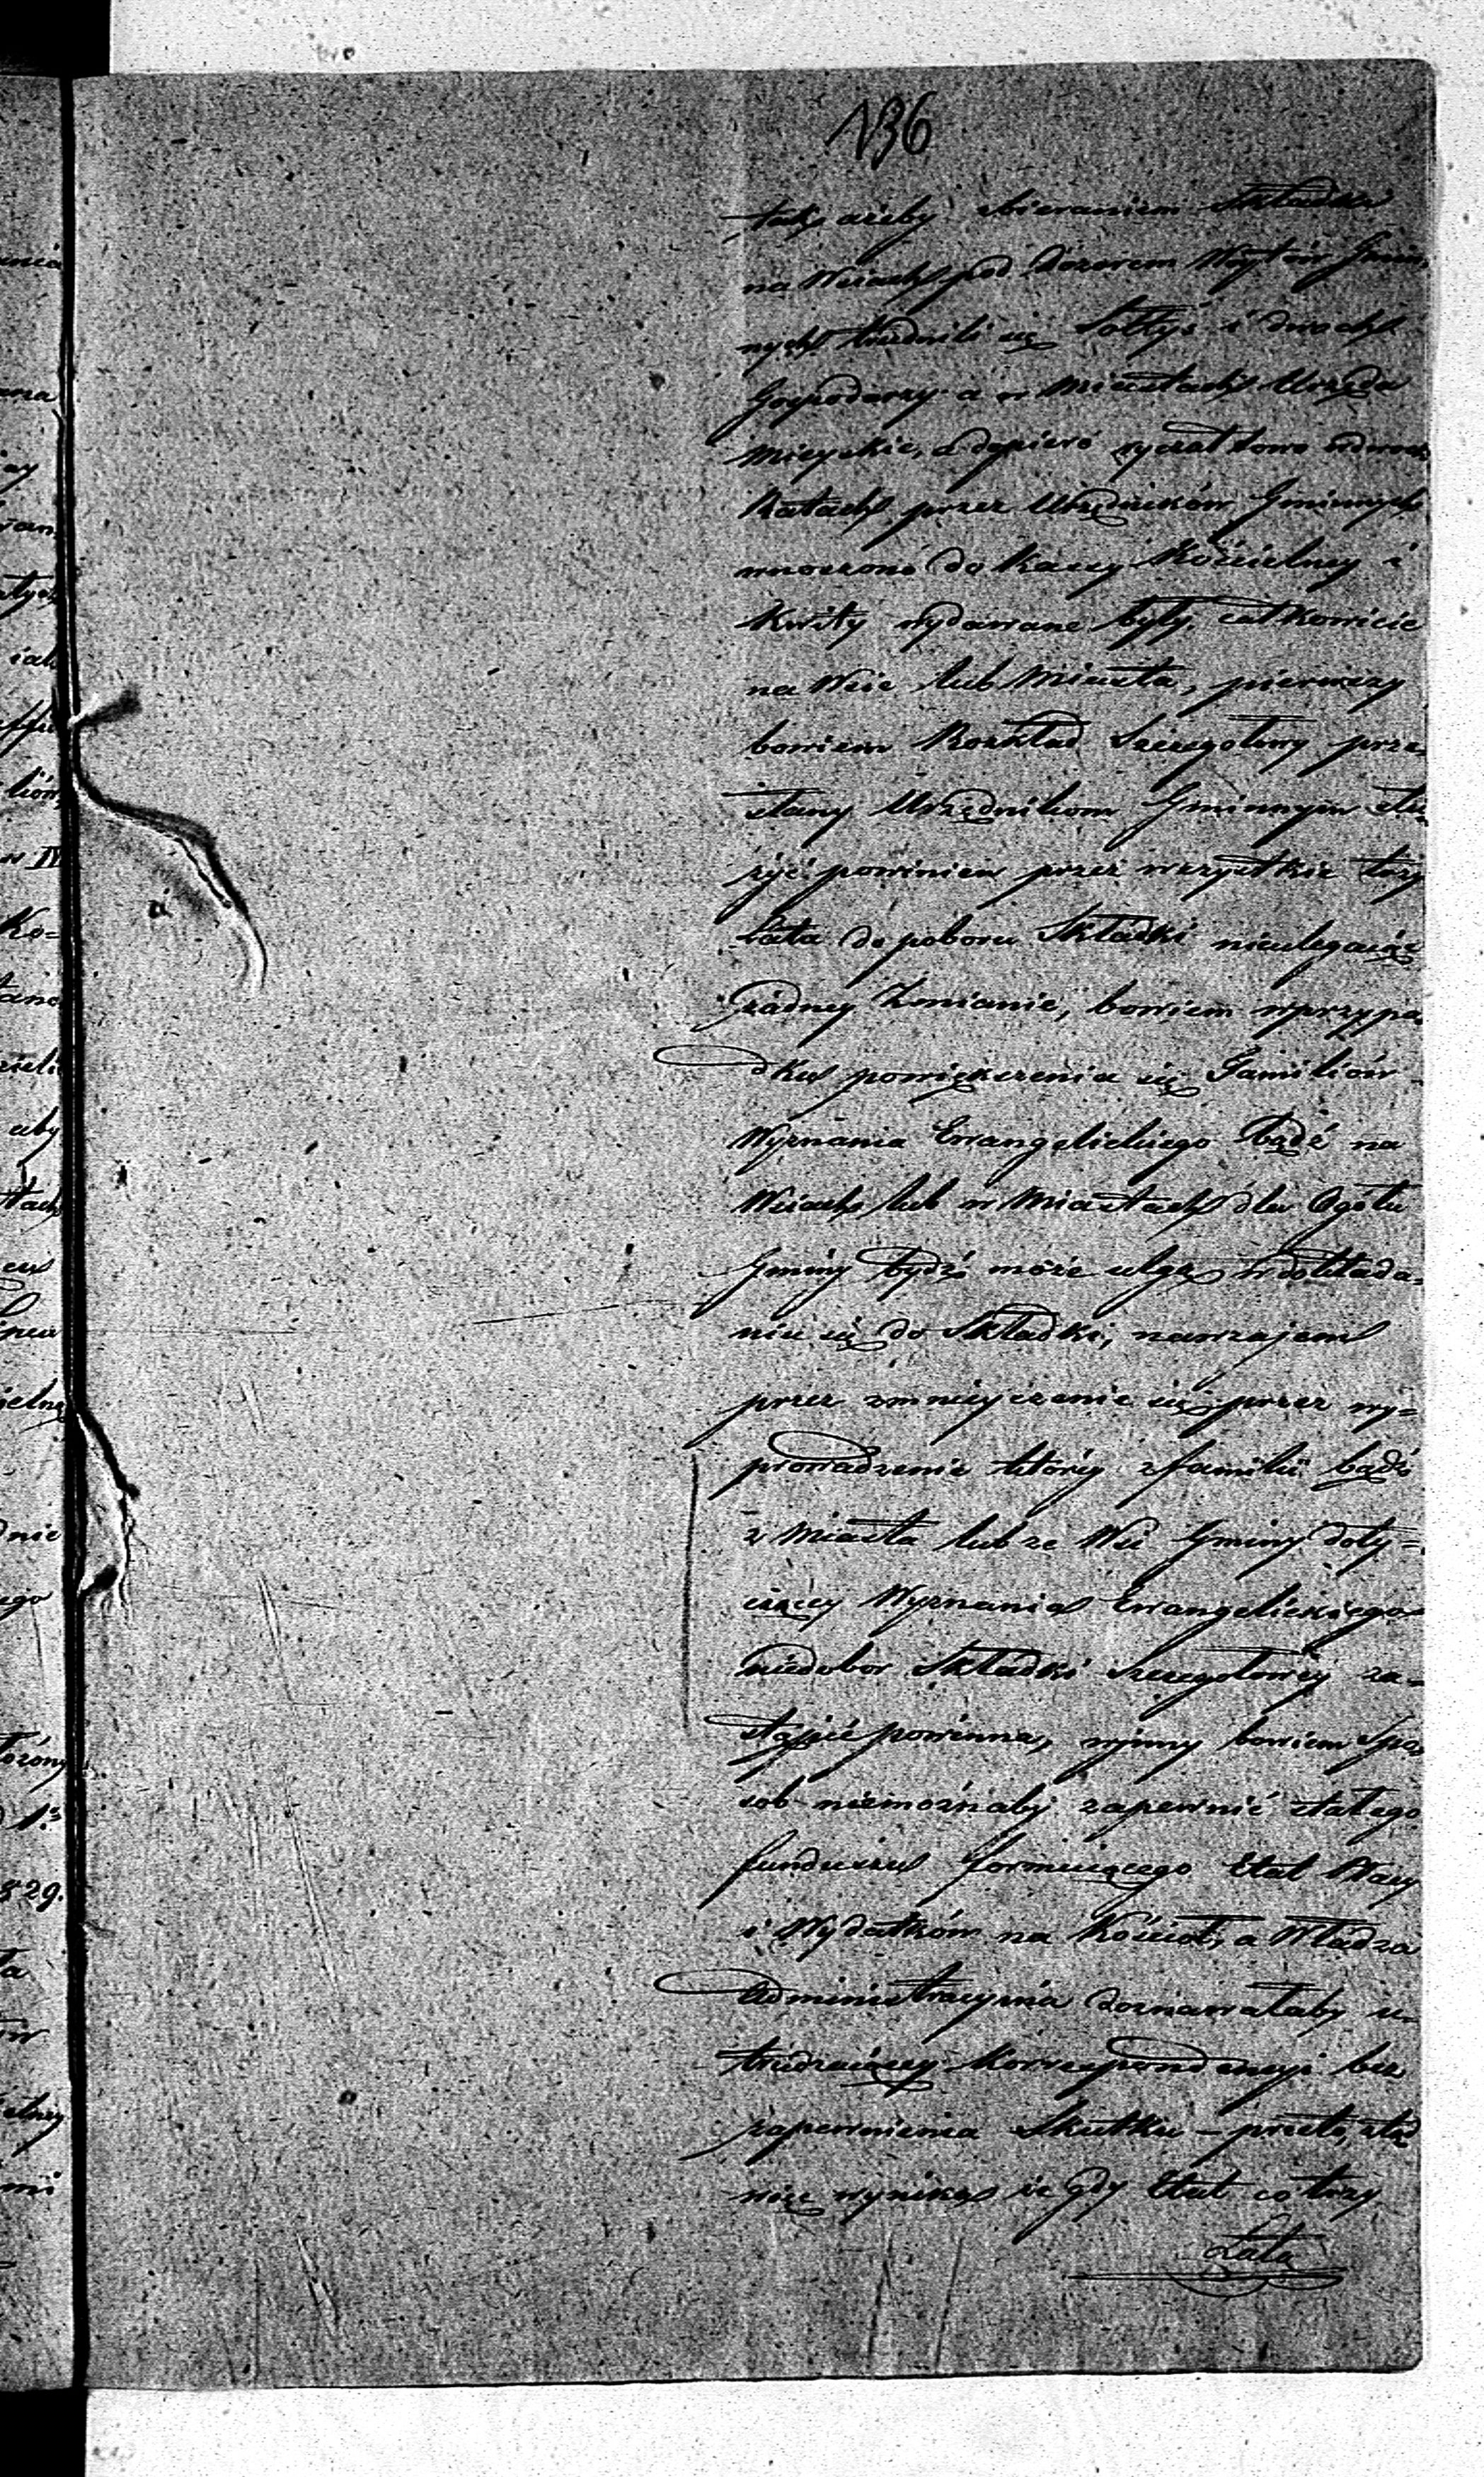 136
tak, ażeby zbieraniem Składki
na Wsiach pod dozorem Wóytów Gmin
nych trudnili się Sołtys i dwóch
Gospodarzy a w Miastach Urzęda
Mieyskie, a dopiero ryczałtowo w dwóch
Ratach przez Urzędników Gminnych
wnoszono do Kassy Kościelney i
Kwity wydawane były całkowicie
na Wsie lub Miasta, pierwszy
bowiem Rozkład Szczegółowy prze-
słany Urzędnikom Gminnym słu-
żyć powinien przez wszystkie trzy
Lata do poboru Składki nieulegaiąc
żadney Zmianie, bowiem w przypa-
dku powiększenia się Familiów
Wyznania Ewangelickiego bądź na
Wsiach lub w Miastach dla Ogółu
Gminy bydź może ulgą w dokłada-
niu się do Składki, nawzajem
przez zmnieyszenie się przez wy-
prowadzenie któréy z familii bądź
z Miasta lub ze Wsi Gminy doty-
czącey Wyznania Ewangelickiego
niedobor Składki Szczegółowéy za-
stąpić powinna, w inny bowiem Spo-
sob niemożnaby zapewnić stałego
funduszu formuiącego Etat
i Wydatków na Kościół, a Władza
Administracyina doznawałaby u-
trudzaiącey Korrespondencyi bez
zapewnienia Skutku – przeto, ztąd
więc wynika że gdy Etat co trzy
Lata